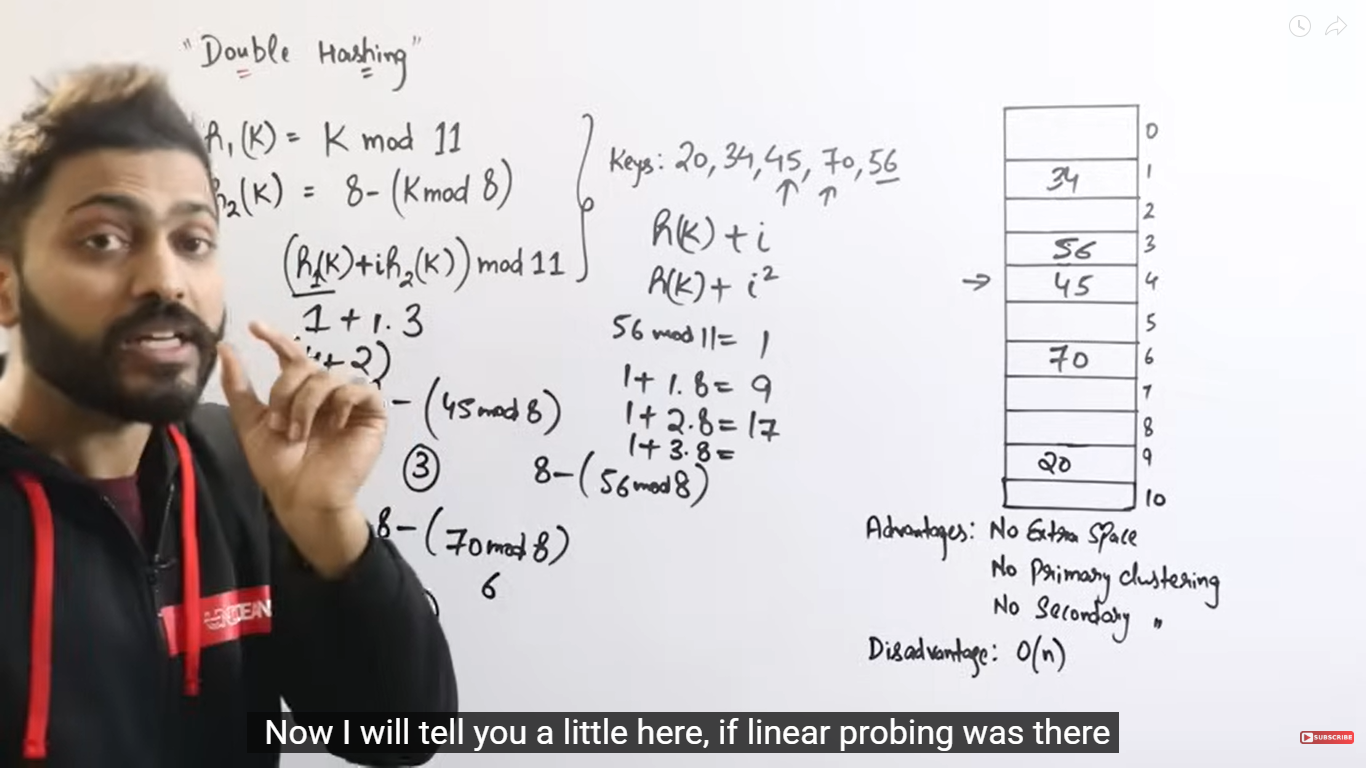 "Double Hashing"
h₁(K) = K mod 11
h₂(K) = 8-(K mod 8)
(h₁(K)+ih₂(K)) mod 11
1 + 1. 3
+ 2)
- (45 mod 8)
③
8-(70 mod 8)
6
Keys: 20, 34, 45, 70, 56
h(K) + i
h(K) + i²
56 mod 11 = 1
1 + 1. 8 = 9
1 + 2. 8 = 17
1 + 3. 8 =
8-(56 mod 8)
0
34 1
2
56 3
→ 45 4
5
70 6
7
8
20 9
10
Advantages: No Extra Space
No Primary clustering
No Secondary "
Disadvantage: O(n)
Now I will tell you a little here, if linear probing was there
SUBSCRIBE